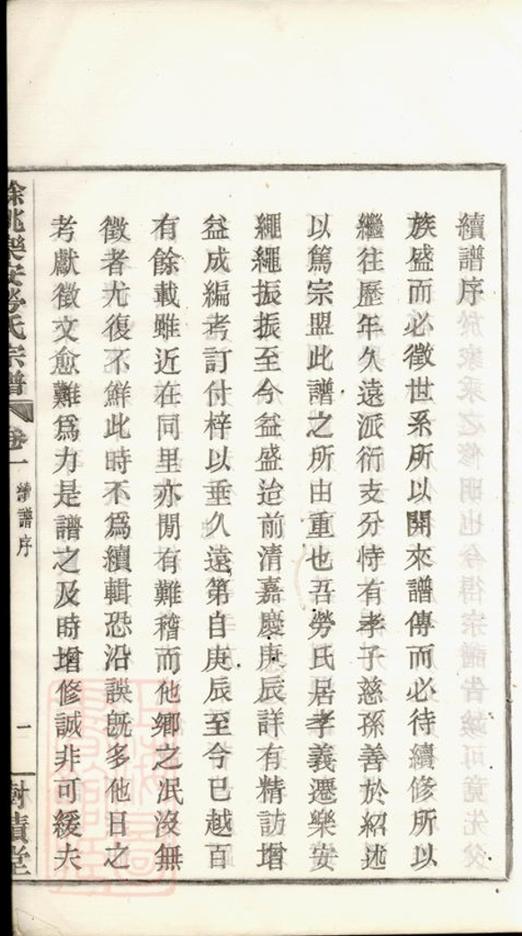 續譜序
族盛而必徵世系所以開來譜傳而必待續修所以
繼往歷年久遠派衍支分恃有孝子慈孫善於紹述
以篤宗盟此譜之所由重也吾勞氏居孝義遷樂安
繩繩振振至今益盛迨前清嘉慶庚辰詳有精訪增
益成編考訂付梓以垂久遠第自庚辰至今已越百
有餘載雖近在同里亦閒有難稽而他鄉之泯沒無
徵者尤復不鮮此時不為續輯恐沿誤既多他日之
考獻徵文愈難為力是譜之及時增修誠非可緩夫
餘姚樂安勞氏宗譜 卷一 續譜序 一